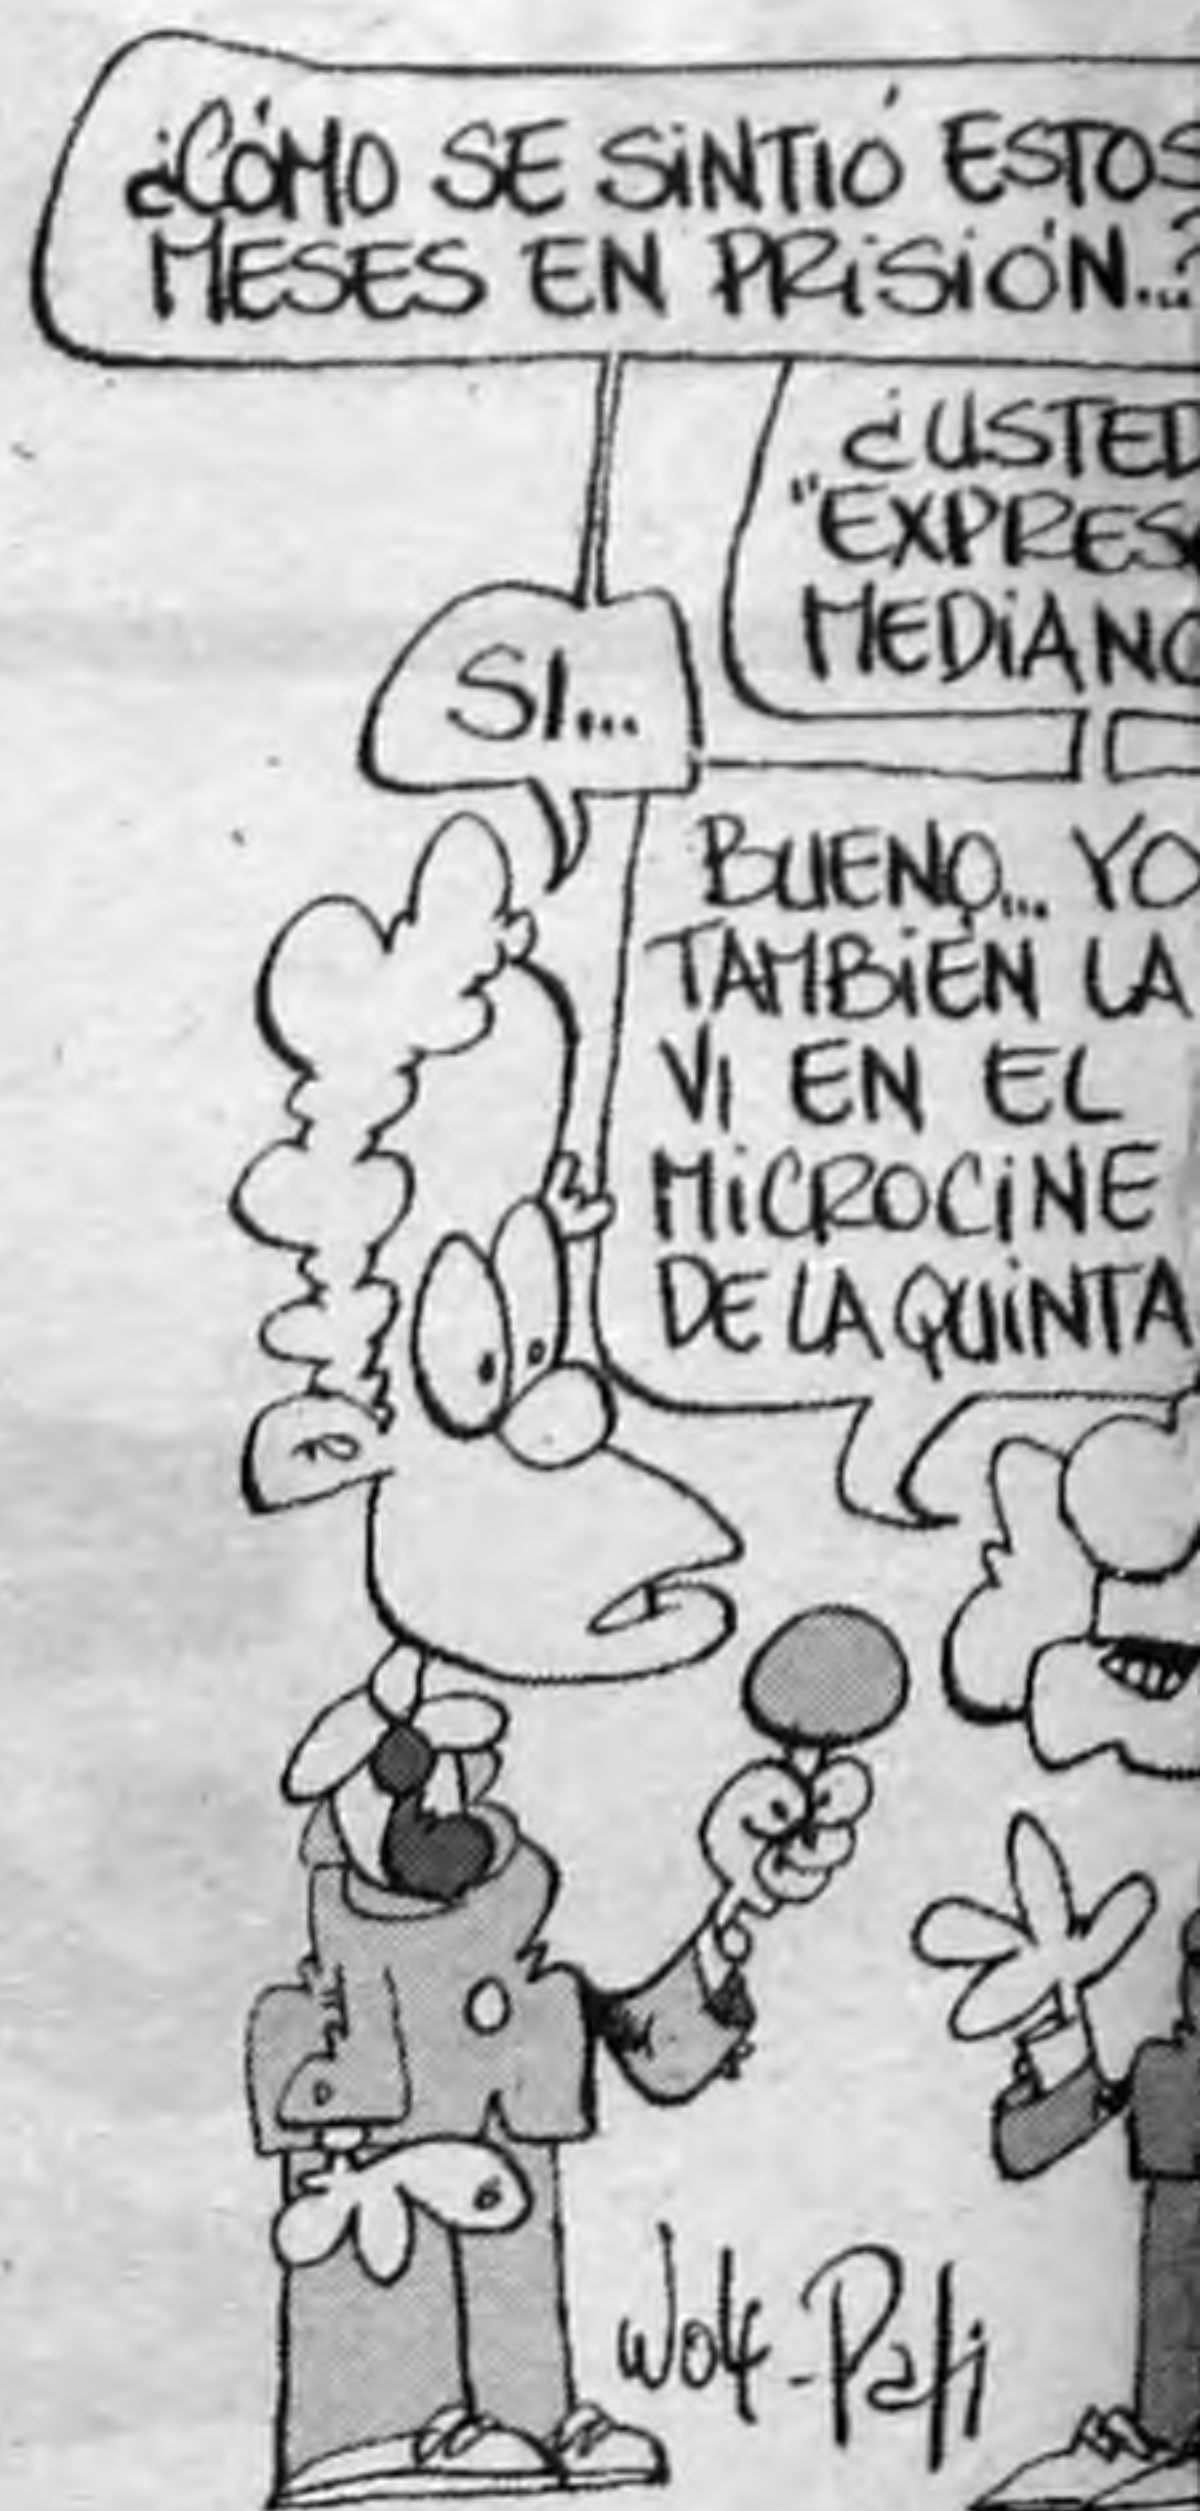 ¿CÓMO SE SINTIÓ ESTOS
MESES EN PRISIÓN...?
¿USTED
"EXPRES
MEDIANO
SI...
BUENO... YO
TAMBIÉN LA
VI EN EL
MICROCINE
DE LA QUINTA
Wolf-Pati